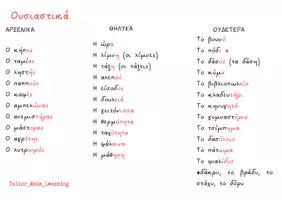 Ουσιαστικά
ΑΡΣΕΝΙΚΑ
Ο κήπος
Ο ταμίας
Ο ληστής
Ο παππούς
Ο καφές
Ο αμπελώνας
Ο ανεμιστήρας
Ο μάστορας
Ο αγρότης
Ο λυτρωμός
ΘΗΛΥΚΑ
Η ώρα
Η λίμνη (οι λίμνες)
Η τάξη (οι τάξεις)
Η αλεπού
Η είσοδος
Η δουλειά
Η γειτόνισσα
Η θερμότητα
Η ταχύτητα
Η ψάλτρια
Η μάθηση
ΟΥΔΕΤΕΡΑ
Το βουνό
Το πόδι *
Το δάσος (τα δάση)
Το κύμα
Το βιβλιοπωλείο
Το κλαδευτήρι
Το κυνηγητό
Το γυμναστήριο
Το τσίμπημα
Το δασύλλιο
Το πάτωμα
Το ψαλίδι
*δάκρυ, το βράδυ, το
στάχυ, το δόρυ
Tailor_Made_Learning